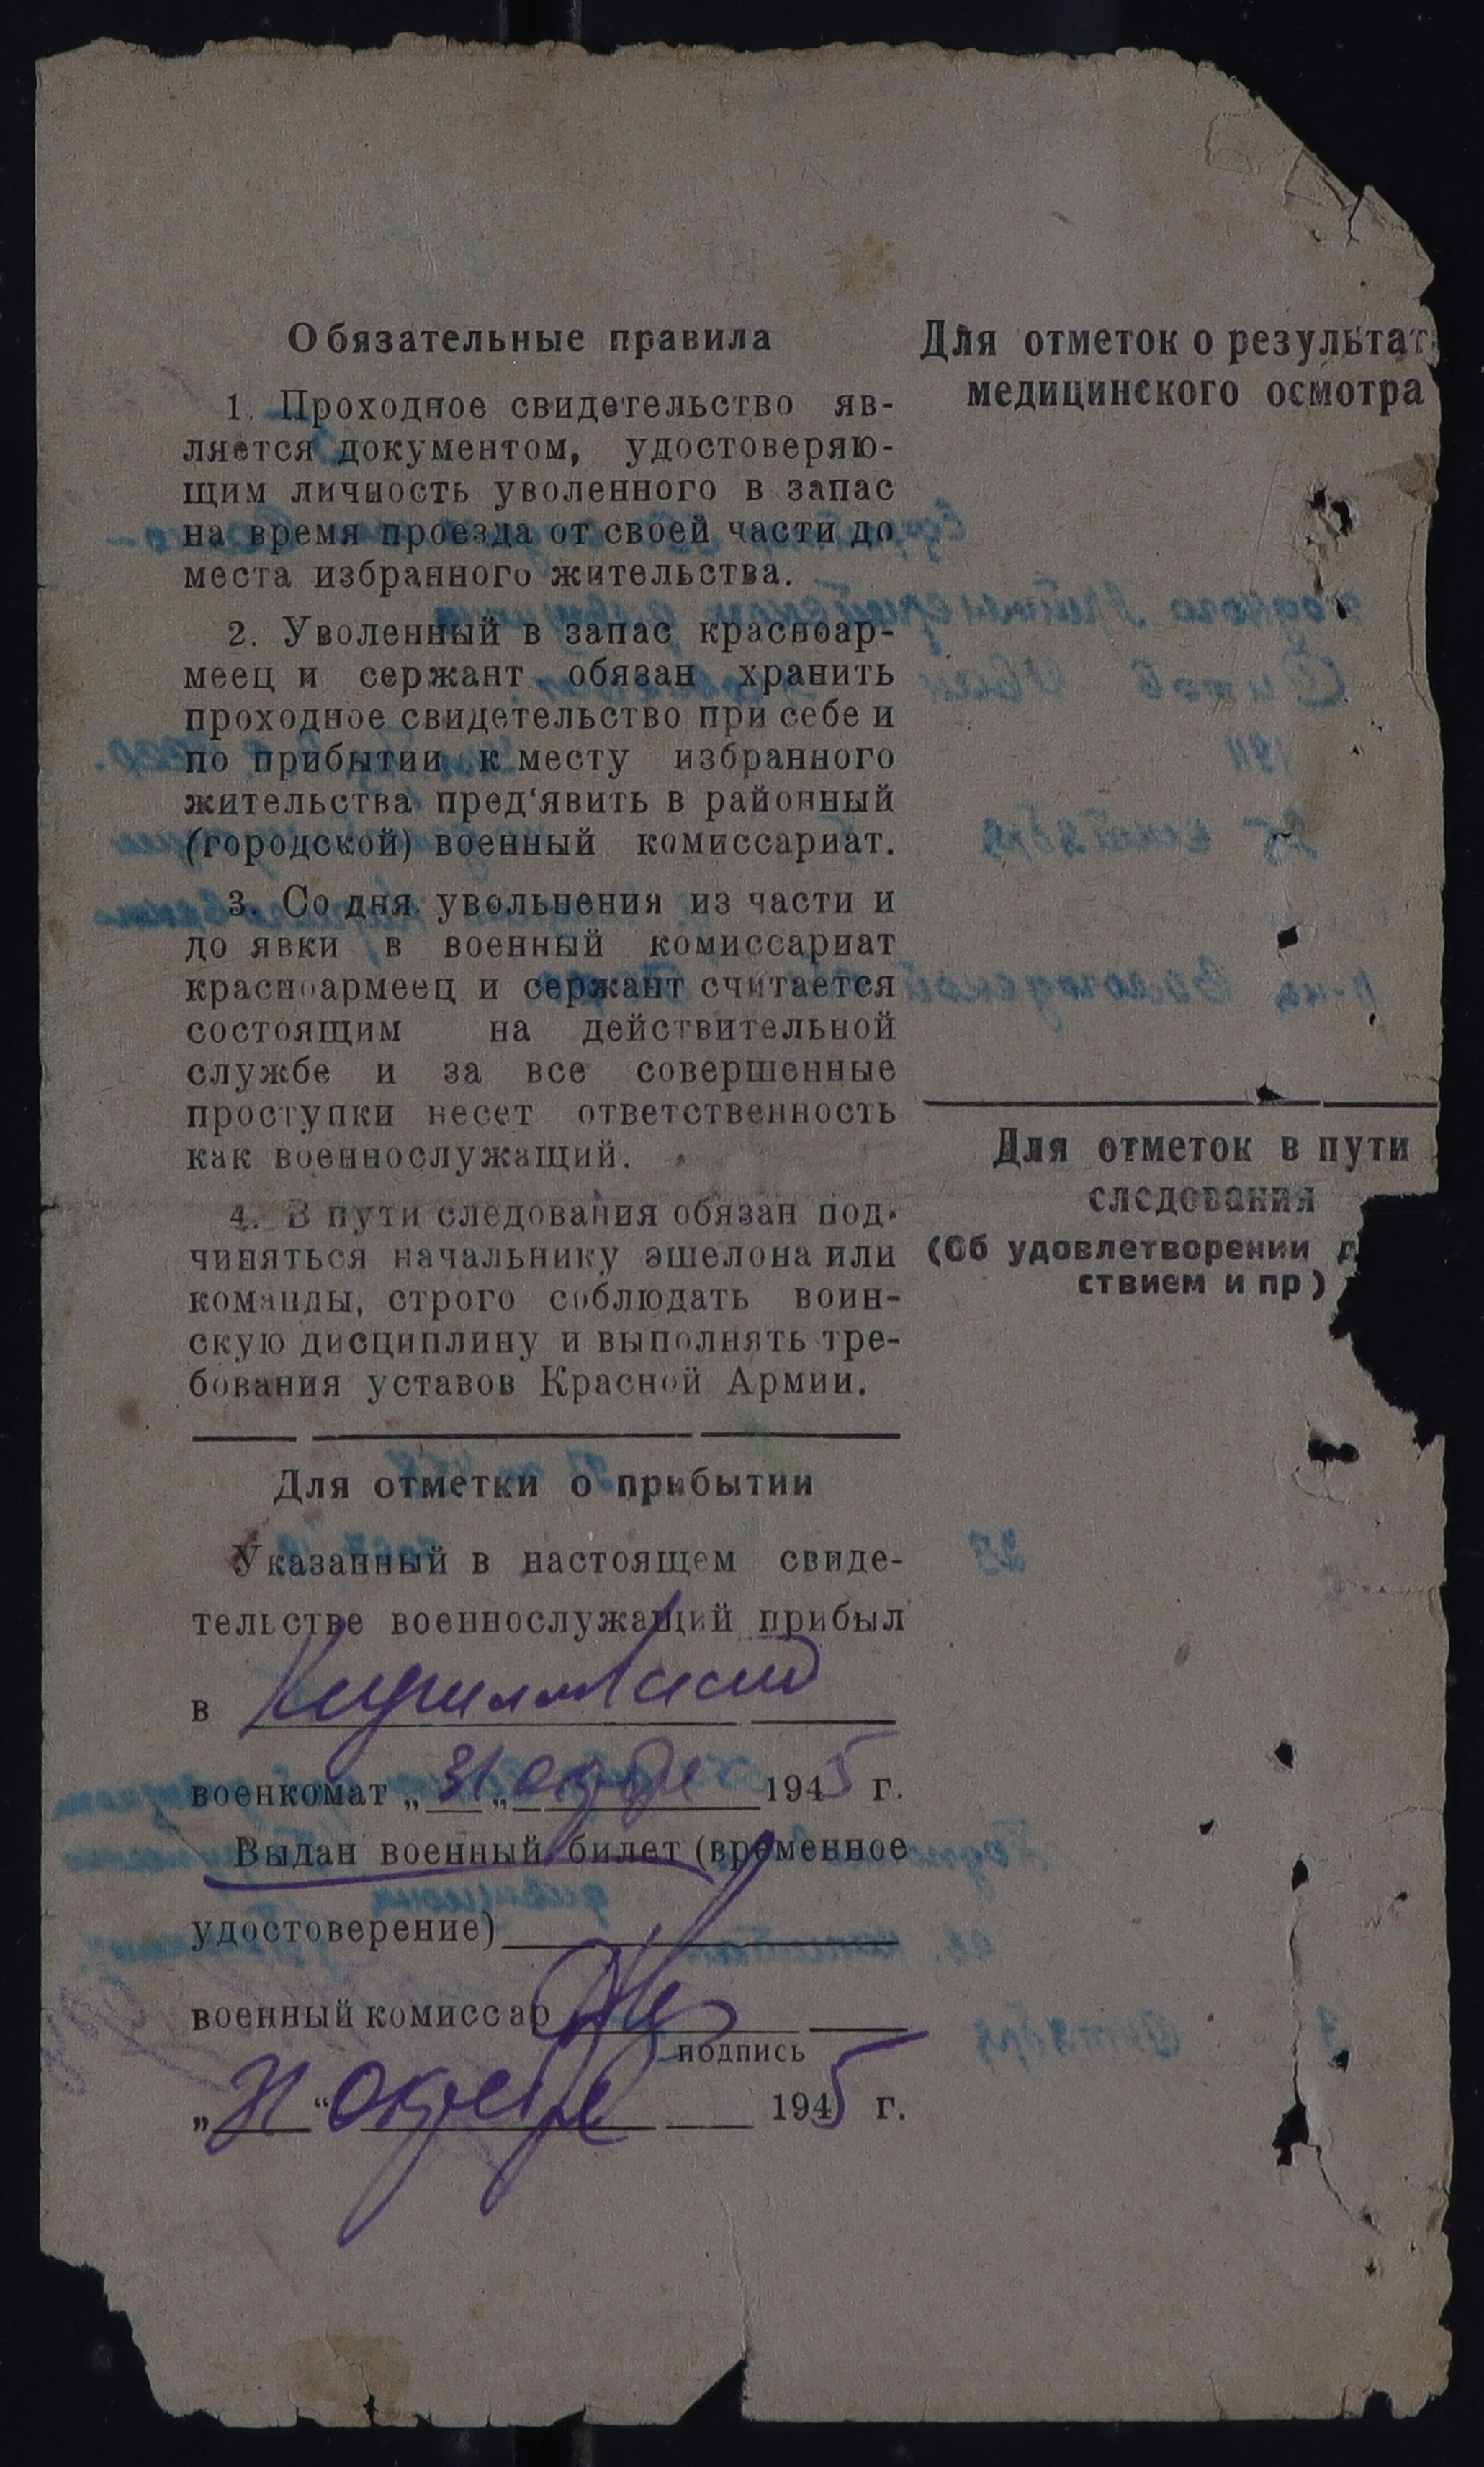 Обязательные правила
1. Проходное свидетельство яв-
ляется документом, удостоверяю-
щим личность уволенного в запас
на время проезда от своей части до
места избранного жительства.
2. Уволенный в запас красноар-
меец и сержант обязан хранить
проходное свидетельство при себе и
по прибытии к месту избранного
жительства пред‘явить в районный
(городской) военный комиссариат.
3. Со дня увольнения из части и
до явки в военный комиссариат
красноармеец и сержант считается
состоящим на действительной
службе и за все совершенные
проступки несет ответственность
как военнослужащий.
4. В пути следования обязан под-
чиняться начальнику эшелона или
команды, строго соблюдать воин-
скую дисциплину и выполнять тре-
бования уставов Красной Армии.
Для отметки о прибытии
Указанный в настоящем свиде-
тельстве военнослужащий прибыл
в
военкомат „31„ октября 1945 г.
Выдан военный билет (временное
удостоверение)
военный комиссар
подпись
„31“ октября 1945 г.
Для отметок о результат
медицинского осмотра
Для отметок в пути
следования
(Об удовлетворении д
ствием и пр)